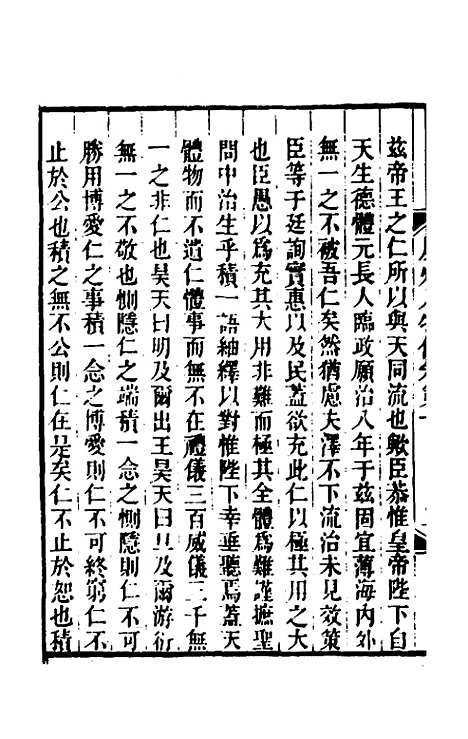 茲帝王之仁所以與天同流也歟臣恭惟皇帝陛下自
天生德體元長人臨政願治八年于茲固宜薄海內外
無一之不被吾仁矣然猶慮夫澤不下流治未見效策
臣等于廷詢實惠以及民蓋欲充此仁以極其用之大
也臣愚以爲充其大用非難而極其全體爲難謹摭聖
問中治生乎積一語紬繹以對惟陛下幸垂聽焉蓋天
體物而不遺仁體事而無不在禮儀三百威儀三千無
一之非仁也昊天曰明及爾出王昊天曰旦及爾游衍
無一之不敬也惻隱仁之端積一念之惻隱則仁不可
勝用博愛仁之事積一念之博愛則仁不可終窮仁不
止於公也積之無不公則仁在是矣仁不止於恕也積